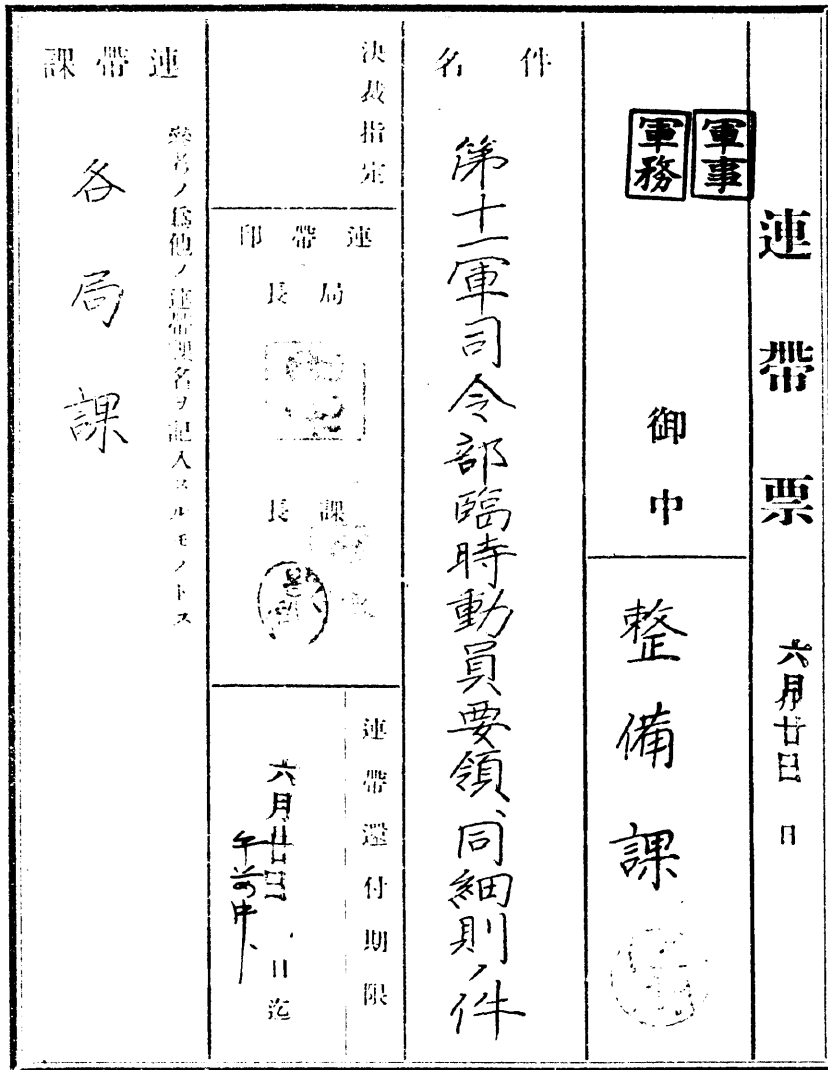 連帶票
六月廿日 日
軍事
軍務
御中
整備課
件名
第十一軍司令部臨時動員要領、同細則ノ件
決裁指定
連帶印
局長
課長
連帶還付期限
六月廿日 日迄
午前中
連帶課
參考ノ爲他ノ連帶課名ヲ記入スルモノトス
各局課